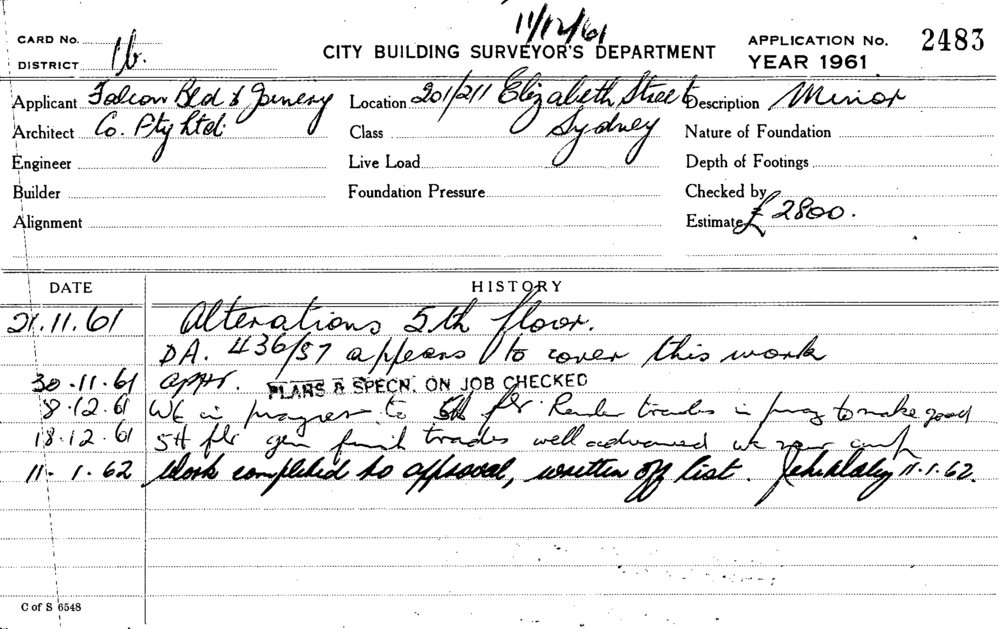 11/12/61
CARD No.
CITY BUILDING SURVEYOR'S DEPARTMENT
APPLICATION No. 2483
DISTRICT 16.
YEAR 1961
Applicant Falcon Bld & Joinery
Location 201/211 Elizabeth Street
Description Minor
Architect Co. Pty Ltd.
Class Sydney
Nature of Foundation
Engineer
Live Load
Depth of Footings
Builder
Foundation Pressure
Checked by
Alignment
Estimate £ 2800.
DATE
HISTORY
21.11.61 Alterations 5th floor.
DA. 436/57 appears to cover this work
30.11.61 PLANS & SPECN. ON JOB CHECKED
8.12.61 Wk in progress to 5th flr. Render trades in prog to make good
18.12.61 5th flr gen trades well advanced wk
11.1.62 Work completed to approval, written off list. 11.1.62.
C of S 6548